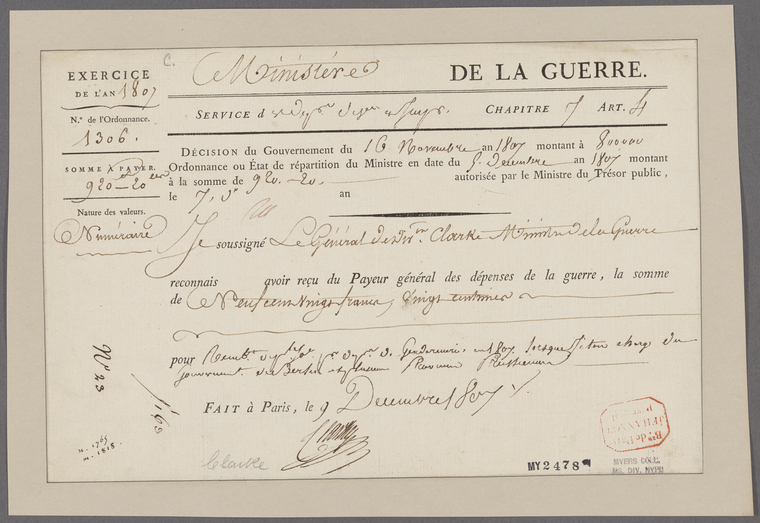 C.
EXERCICE
DE L'AN 1807
N.º de l'Ordonnance.
1306.
SOMME A PAYER.
920-20
Nature des valeurs.
Numéraire
Ministère DE LA GUERRE.
SERVICE d CHAPITRE 7 ART. 4
DÉCISION du Gouvernement du 16 Novembre an 1807 montant à 800000
Ordonnance ou État de répartition du Ministre en date du 5. Decembre an 1807 montant
à la somme de 920-20. autorisée par le Ministre du Trésor public,
le 7. d° an
Je soussigné Le Général de Div.on Clarke Ministre de la Guerre
reconnais avoir reçu du Payeur général des dépenses de la guerre, la somme
de Neuf cent vingt francs, vingt centimes
pour Remb.t de Gendarmerie en 1807 lorsqu'il était chargé du
gouvernement de Berlin Prussienne
FAIT à Paris, le 9 Decembre 1807
Clarke
Clarke
N° 23
n. 1765
m. 1818.
MY 2478
MYERS COLL.
MS. DIV. NYPL